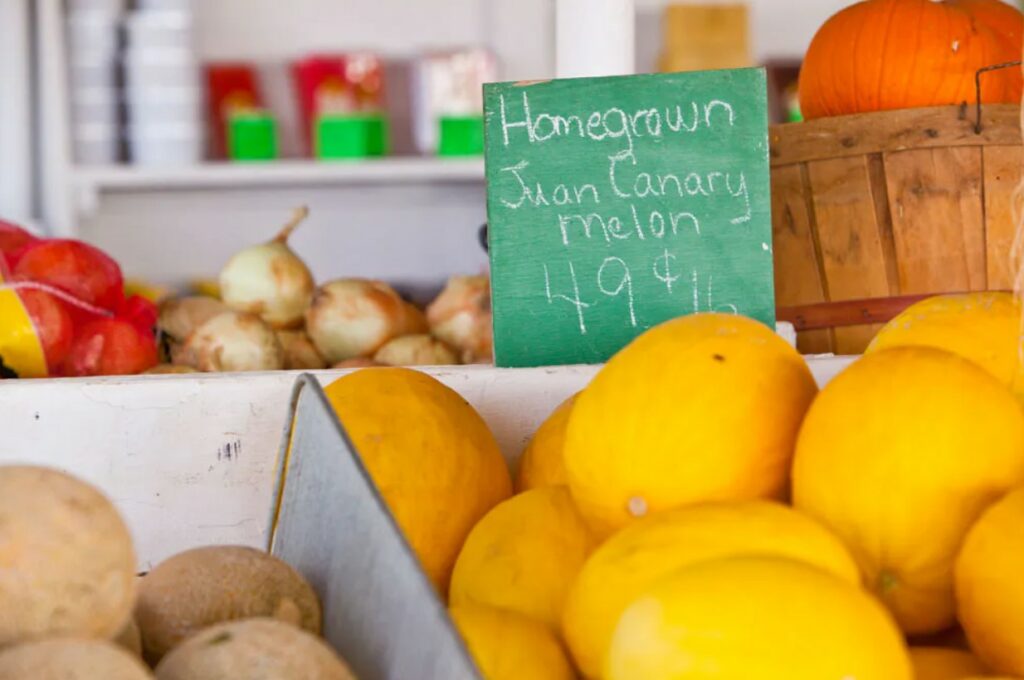 Homegrown
Juan Canary
melon
49¢ lb